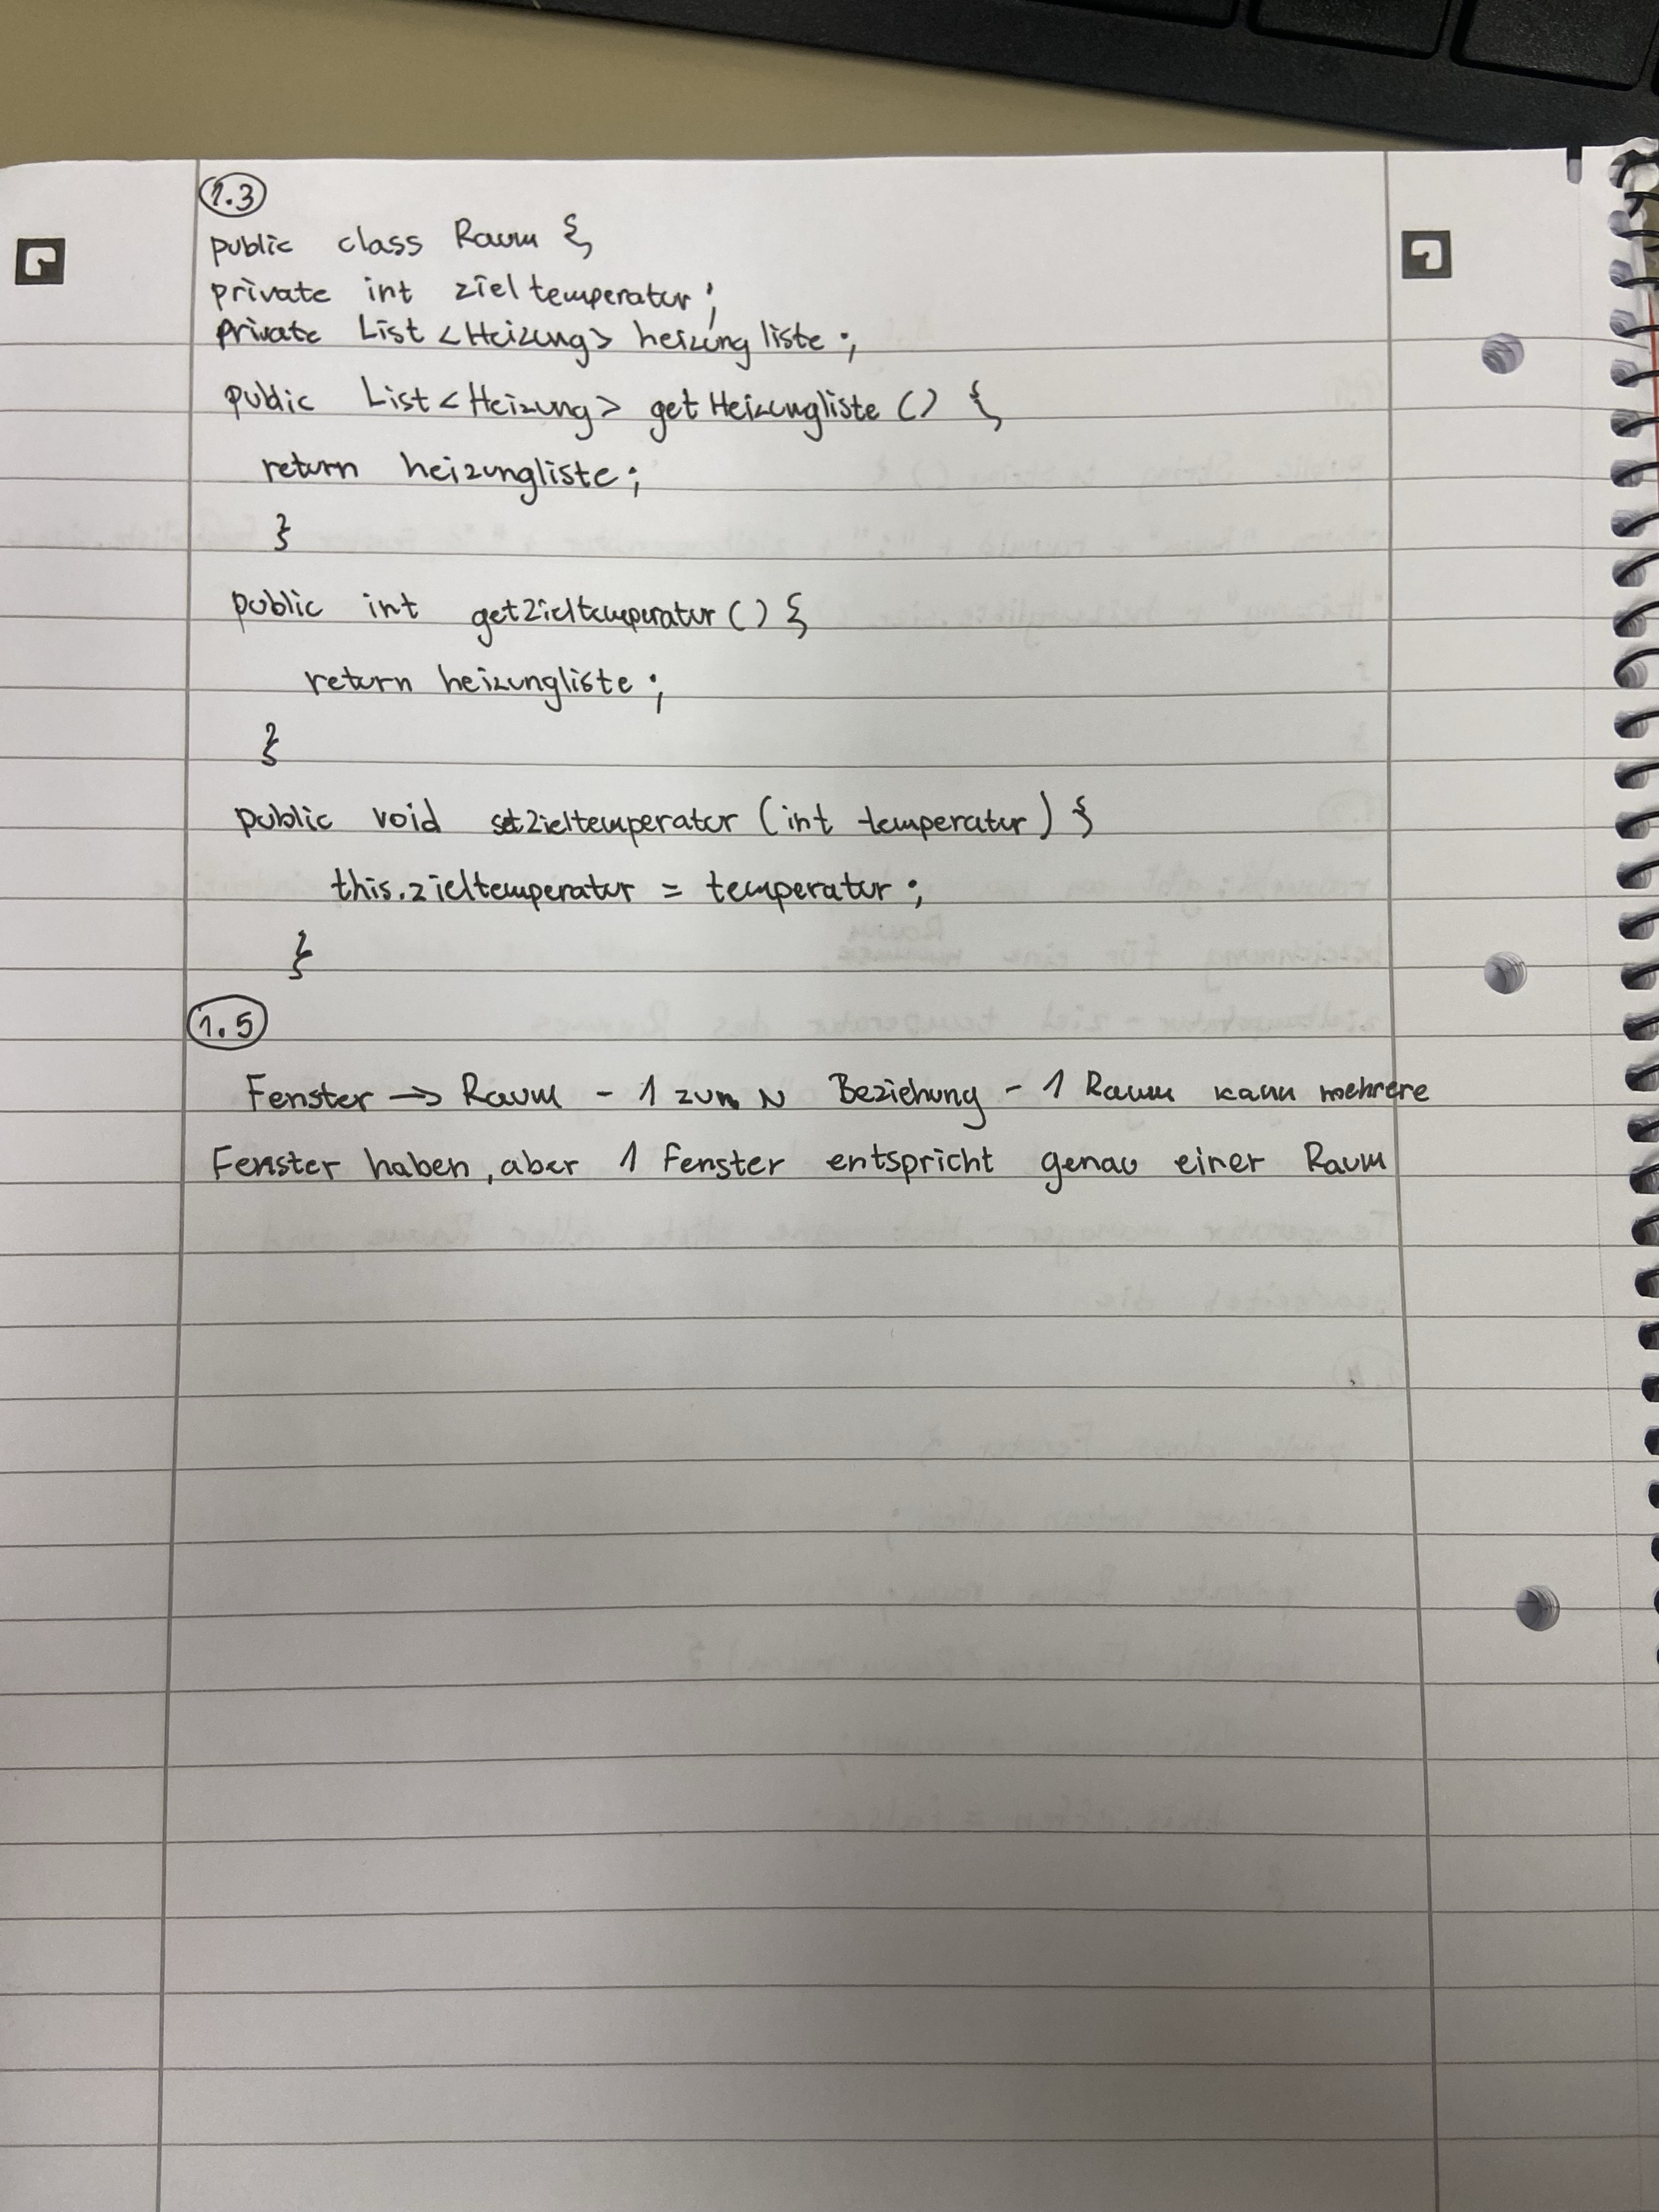 1.3
public class Raum {
private int zieltemperatur;
private List<Heizung> heizungliste;
public List<Heizung> getHeizungliste () {
return heizungliste;
}
public int getZieltemperatur () {
return heizungliste;
}
public void setZieltemperatur (int temperatur) {
this.zieltemperatur = temperatur;
}
1.5
Fenster → Raum - 1 zum N Beziehung - 1 Raum kann mehrere
Fenster haben, aber 1 Fenster entspricht genau einer Raum